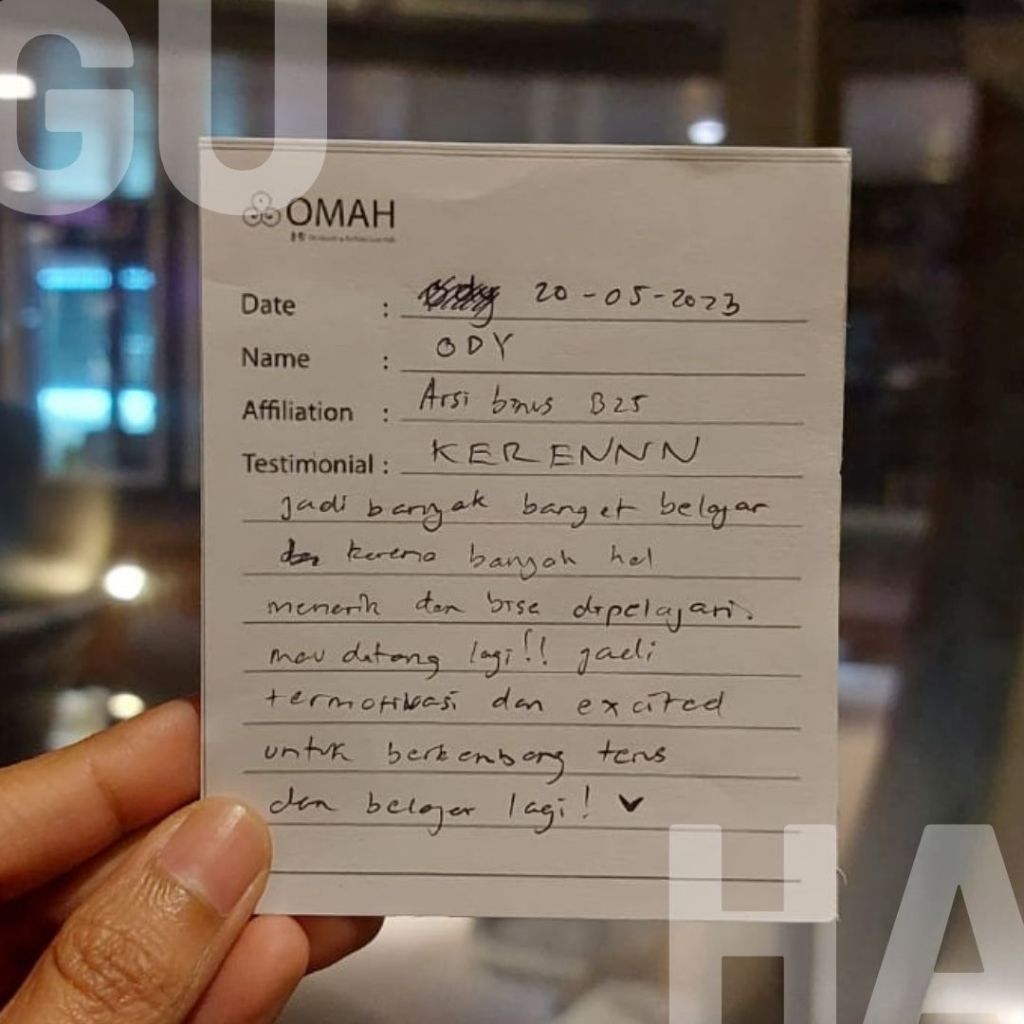 GU
OMAH
Date : 20-05-2023
Name : ODY
Affiliation : Arsi binus B25
Testimonial : KERENNN
jadi banyak banget belajar
karena banyak hal
menarik dan bisa dipelajari.
mau datang lagi!! jadi
termotivasi dan excited
untuk berkembang terus
dan belajar lagi!
HA